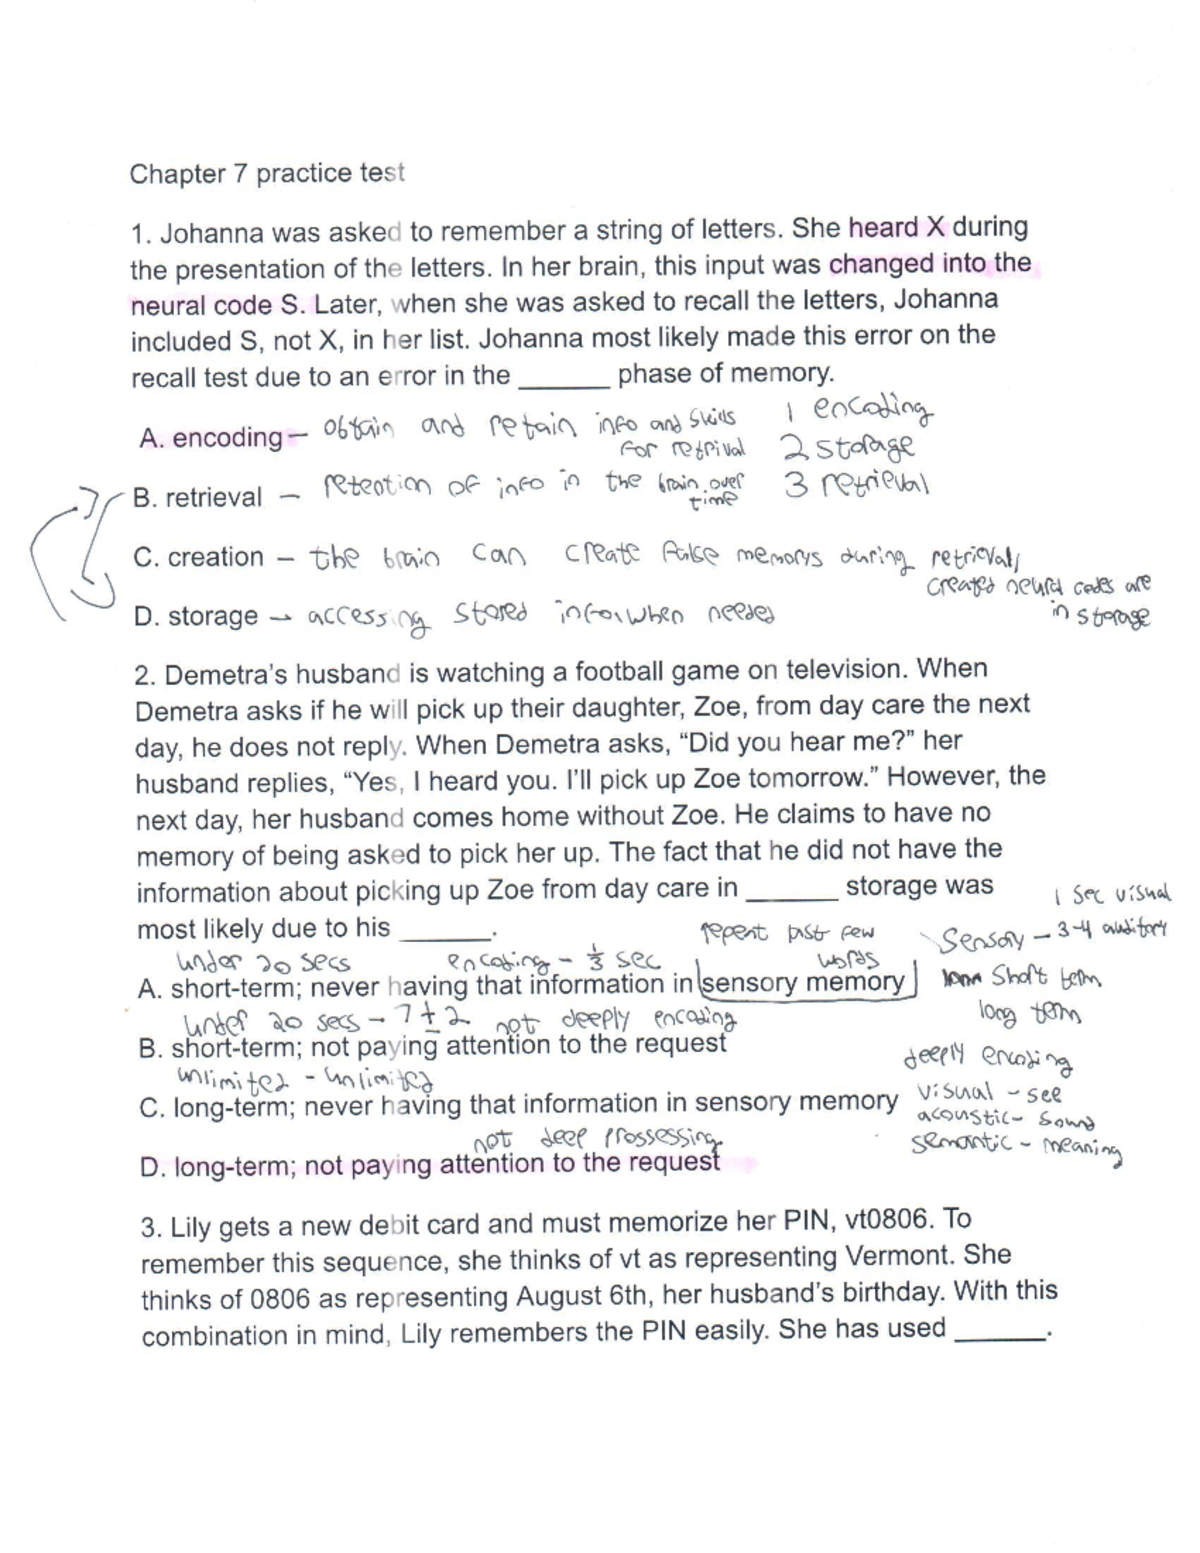 Chapter 7 practice test
1. Johanna was asked to remember a string of letters. She heard X during
the presentation of the letters. In her brain, this input was changed into the
neural code S. Later, when she was asked to recall the letters, Johanna
included S, not X, in her list. Johanna most likely made this error on the
recall test due to an error in the ______ phase of memory.
A. encoding – obtain and retain info and skills
for retrival
1 encoding
2 storage
3 retrieval
B. retrieval – retention of info in the brain over
time
C. creation – the brain can create false memorys during retrieval,
created neural codes are
in storage
D. storage – accessing stored info when needed
2. Demetra’s husband is watching a football game on television. When
Demetra asks if he will pick up their daughter, Zoe, from day care the next
day, he does not reply. When Demetra asks, “Did you hear me?” her
husband replies, “Yes, I heard you. I’ll pick up Zoe tomorrow.” However, the
next day, her husband comes home without Zoe. He claims to have no
memory of being asked to pick her up. The fact that he did not have the
information about picking up Zoe from day care in ______ storage was
most likely due to his ______.
1 sec visual
Sensory – 3-4 auditory
short term
long term
repent past few
words
under 20 secs encoding – 1/3 sec
A. short-term; never having that information in sensory memory
under 20 secs – 7 ± 2 not deeply encoding
B. short-term; not paying attention to the request
unlimited – unlimited
C. long-term; never having that information in sensory memory
deeply encoding
visual – see
acoustic – sound
semantic – meaning
not deep prossessing
D. long-term; not paying attention to the request
3. Lily gets a new debit card and must memorize her PIN, vt0806. To
remember this sequence, she thinks of vt as representing Vermont. She
thinks of 0806 as representing August 6th, her husband’s birthday. With this
combination in mind, Lily remembers the PIN easily. She has used ______.